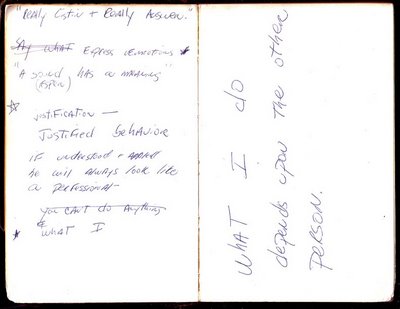 "Really Listen + Really Answer."
SAY WHAT EXPRESS
"A sound has a meaning"
JUSTIFICATION —
Justified behavior
IF understood +
he will ALWAYS look like
a professional
you CAN'T do Anything
WHAT I
WHAT I do
depends upon the other
person.